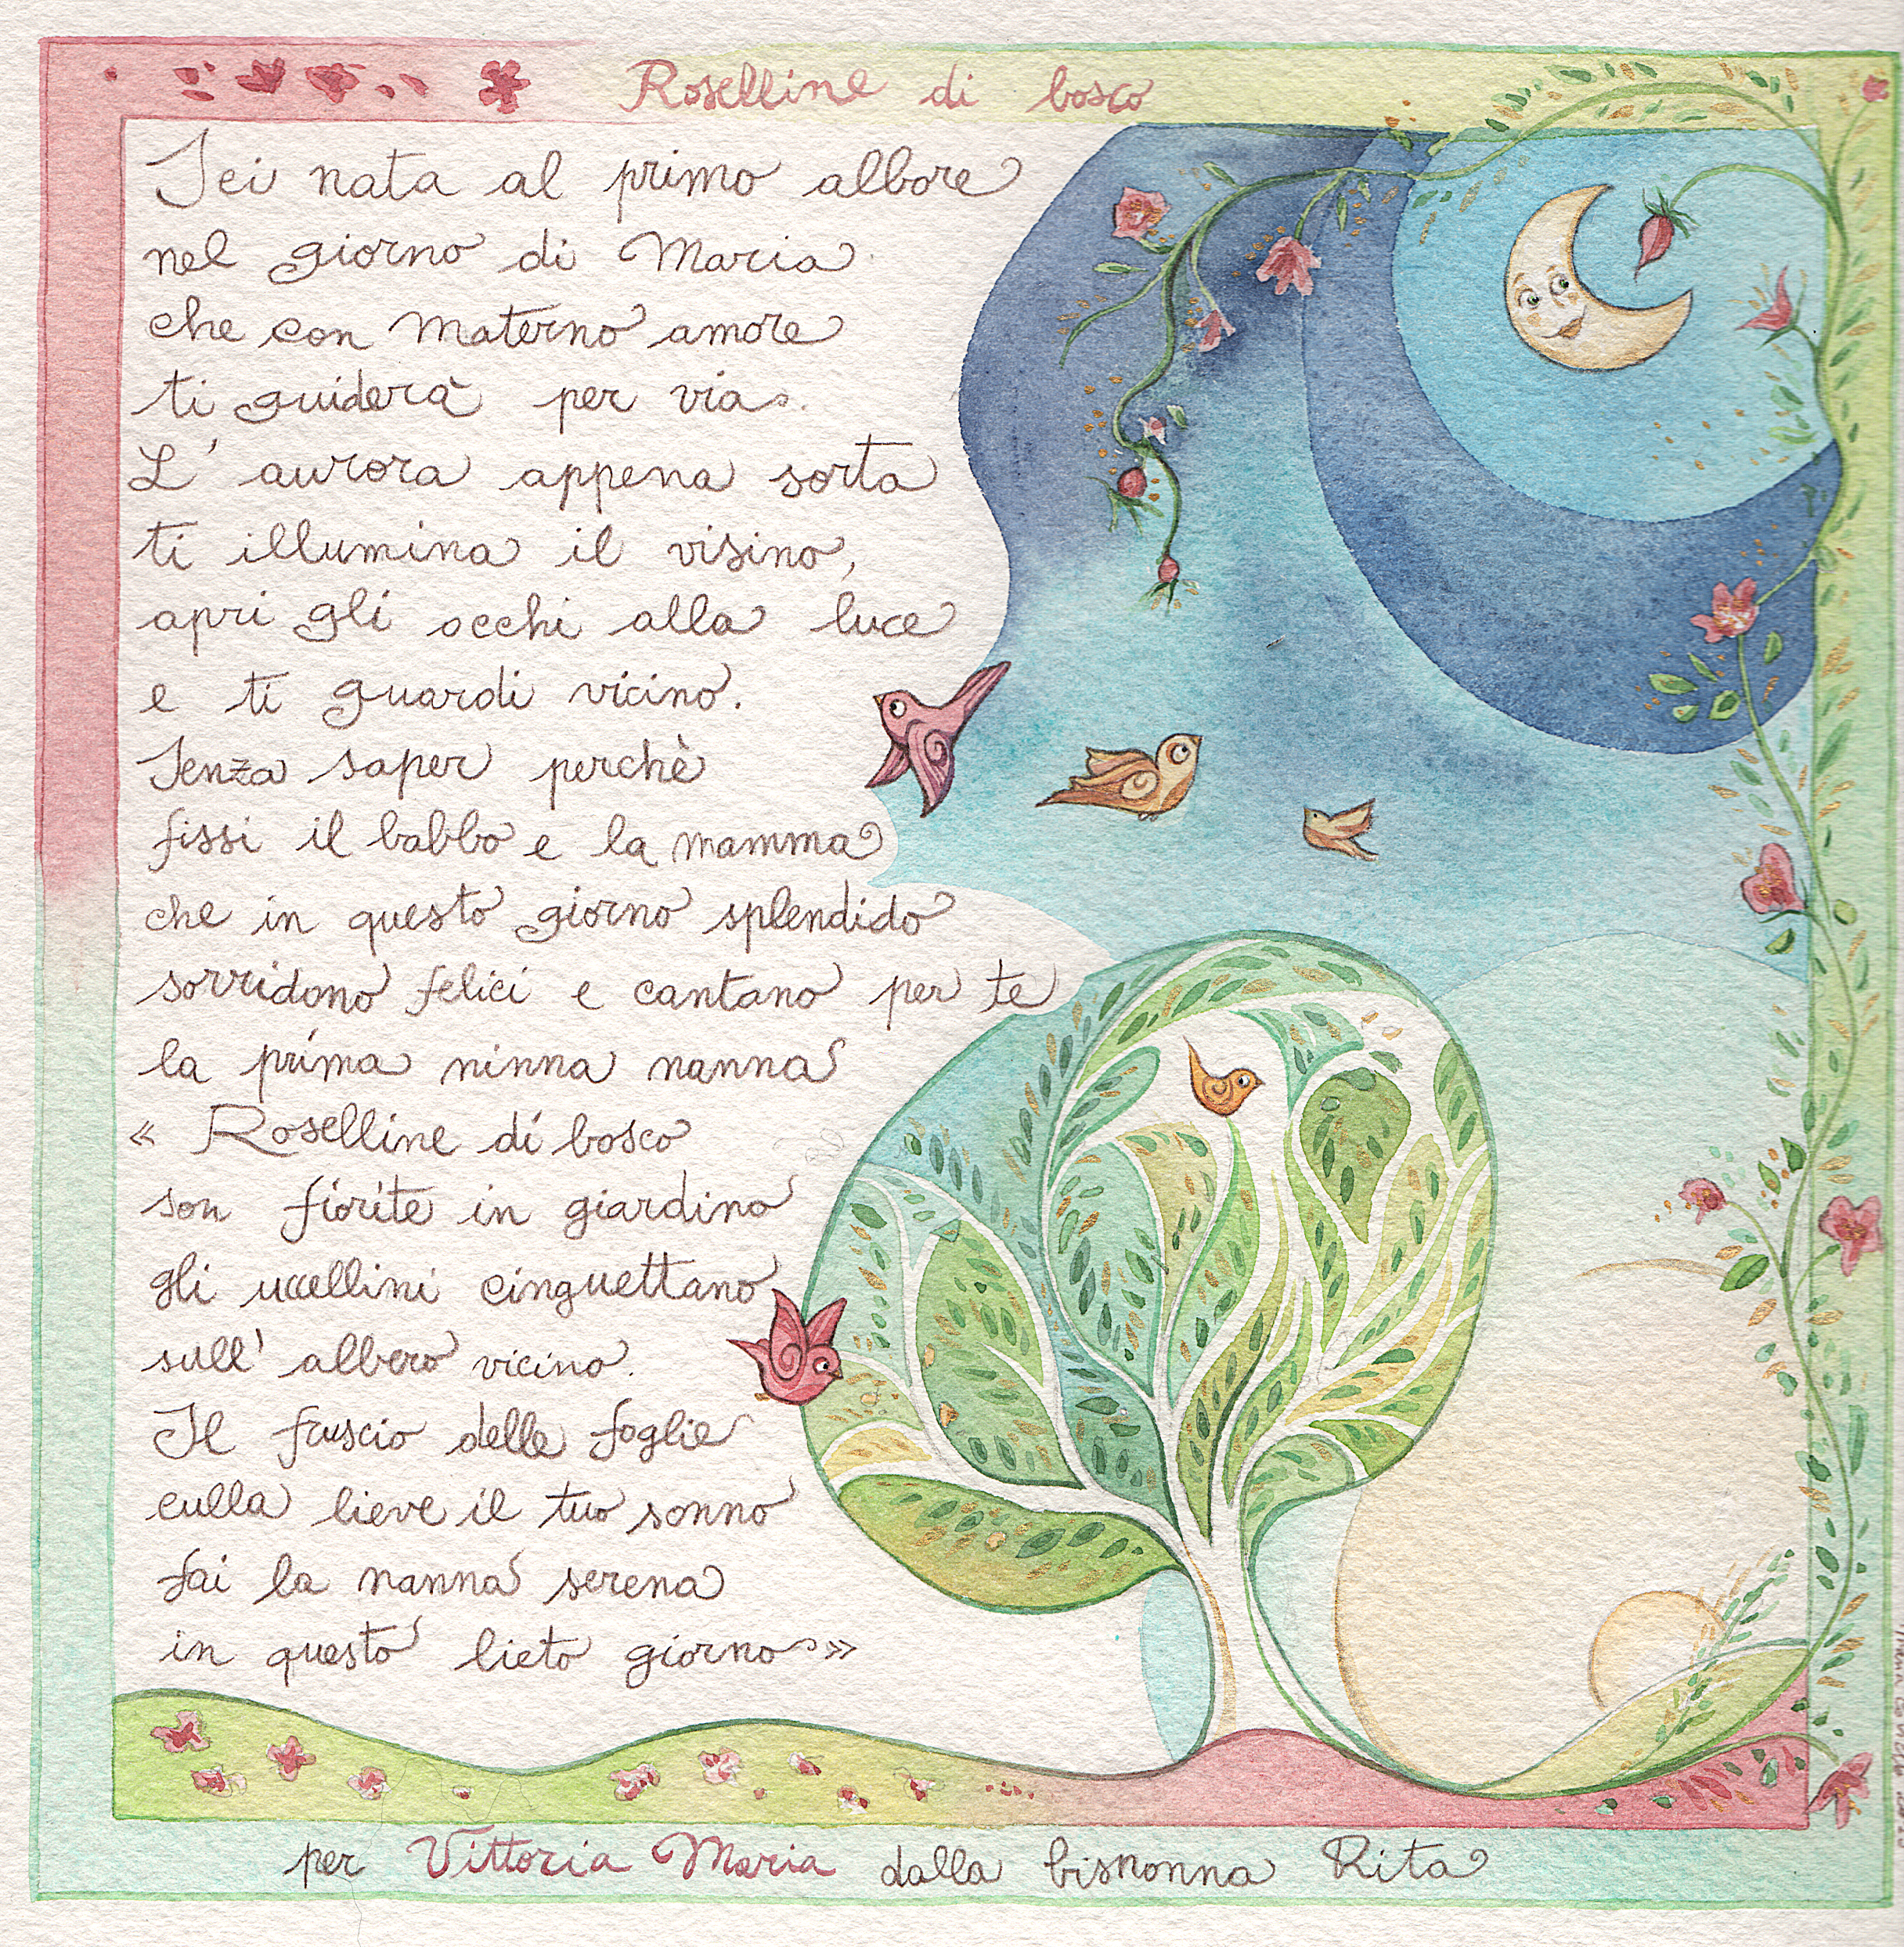 Roselline di bosco
Sei nata al primo albore
nel giorno di Maria
che con materno amore
ti guiderà per via.
L'aurora appena sorta
ti illumina il visino,
apri gli occhi alla luce
e ti guardi vicino.
Senza saper perchè
fissi il babbo e la mamma
che in questo giorno splendido
sorridono felici e cantano per te
la prima ninna nanna
« Roselline di bosco
son fiorite in giardino
gli uccellini cinguettano
sull'albero vicino.
Il fruscio delle foglie
culla lieve il tuo sonno
fai la nanna serena
in questo lieto giorno»
per Vittoria Maria dalla bisnonna Rita